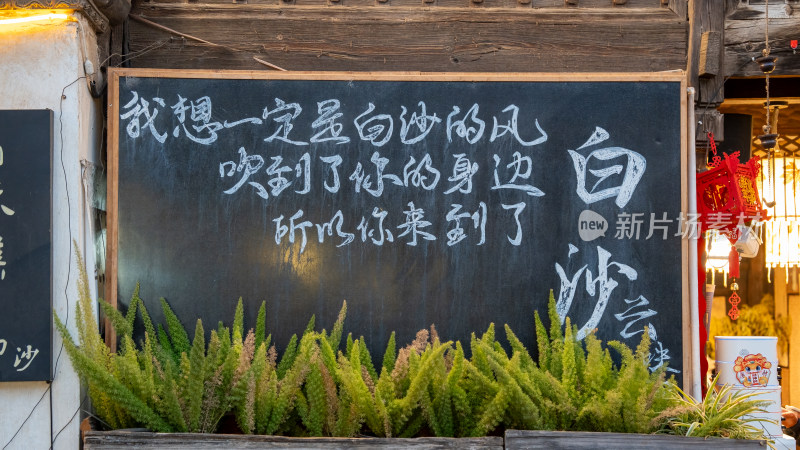 我想一定是白沙的风
吹到了你的身边
所以你来到了
白沙
new 新图网
沙